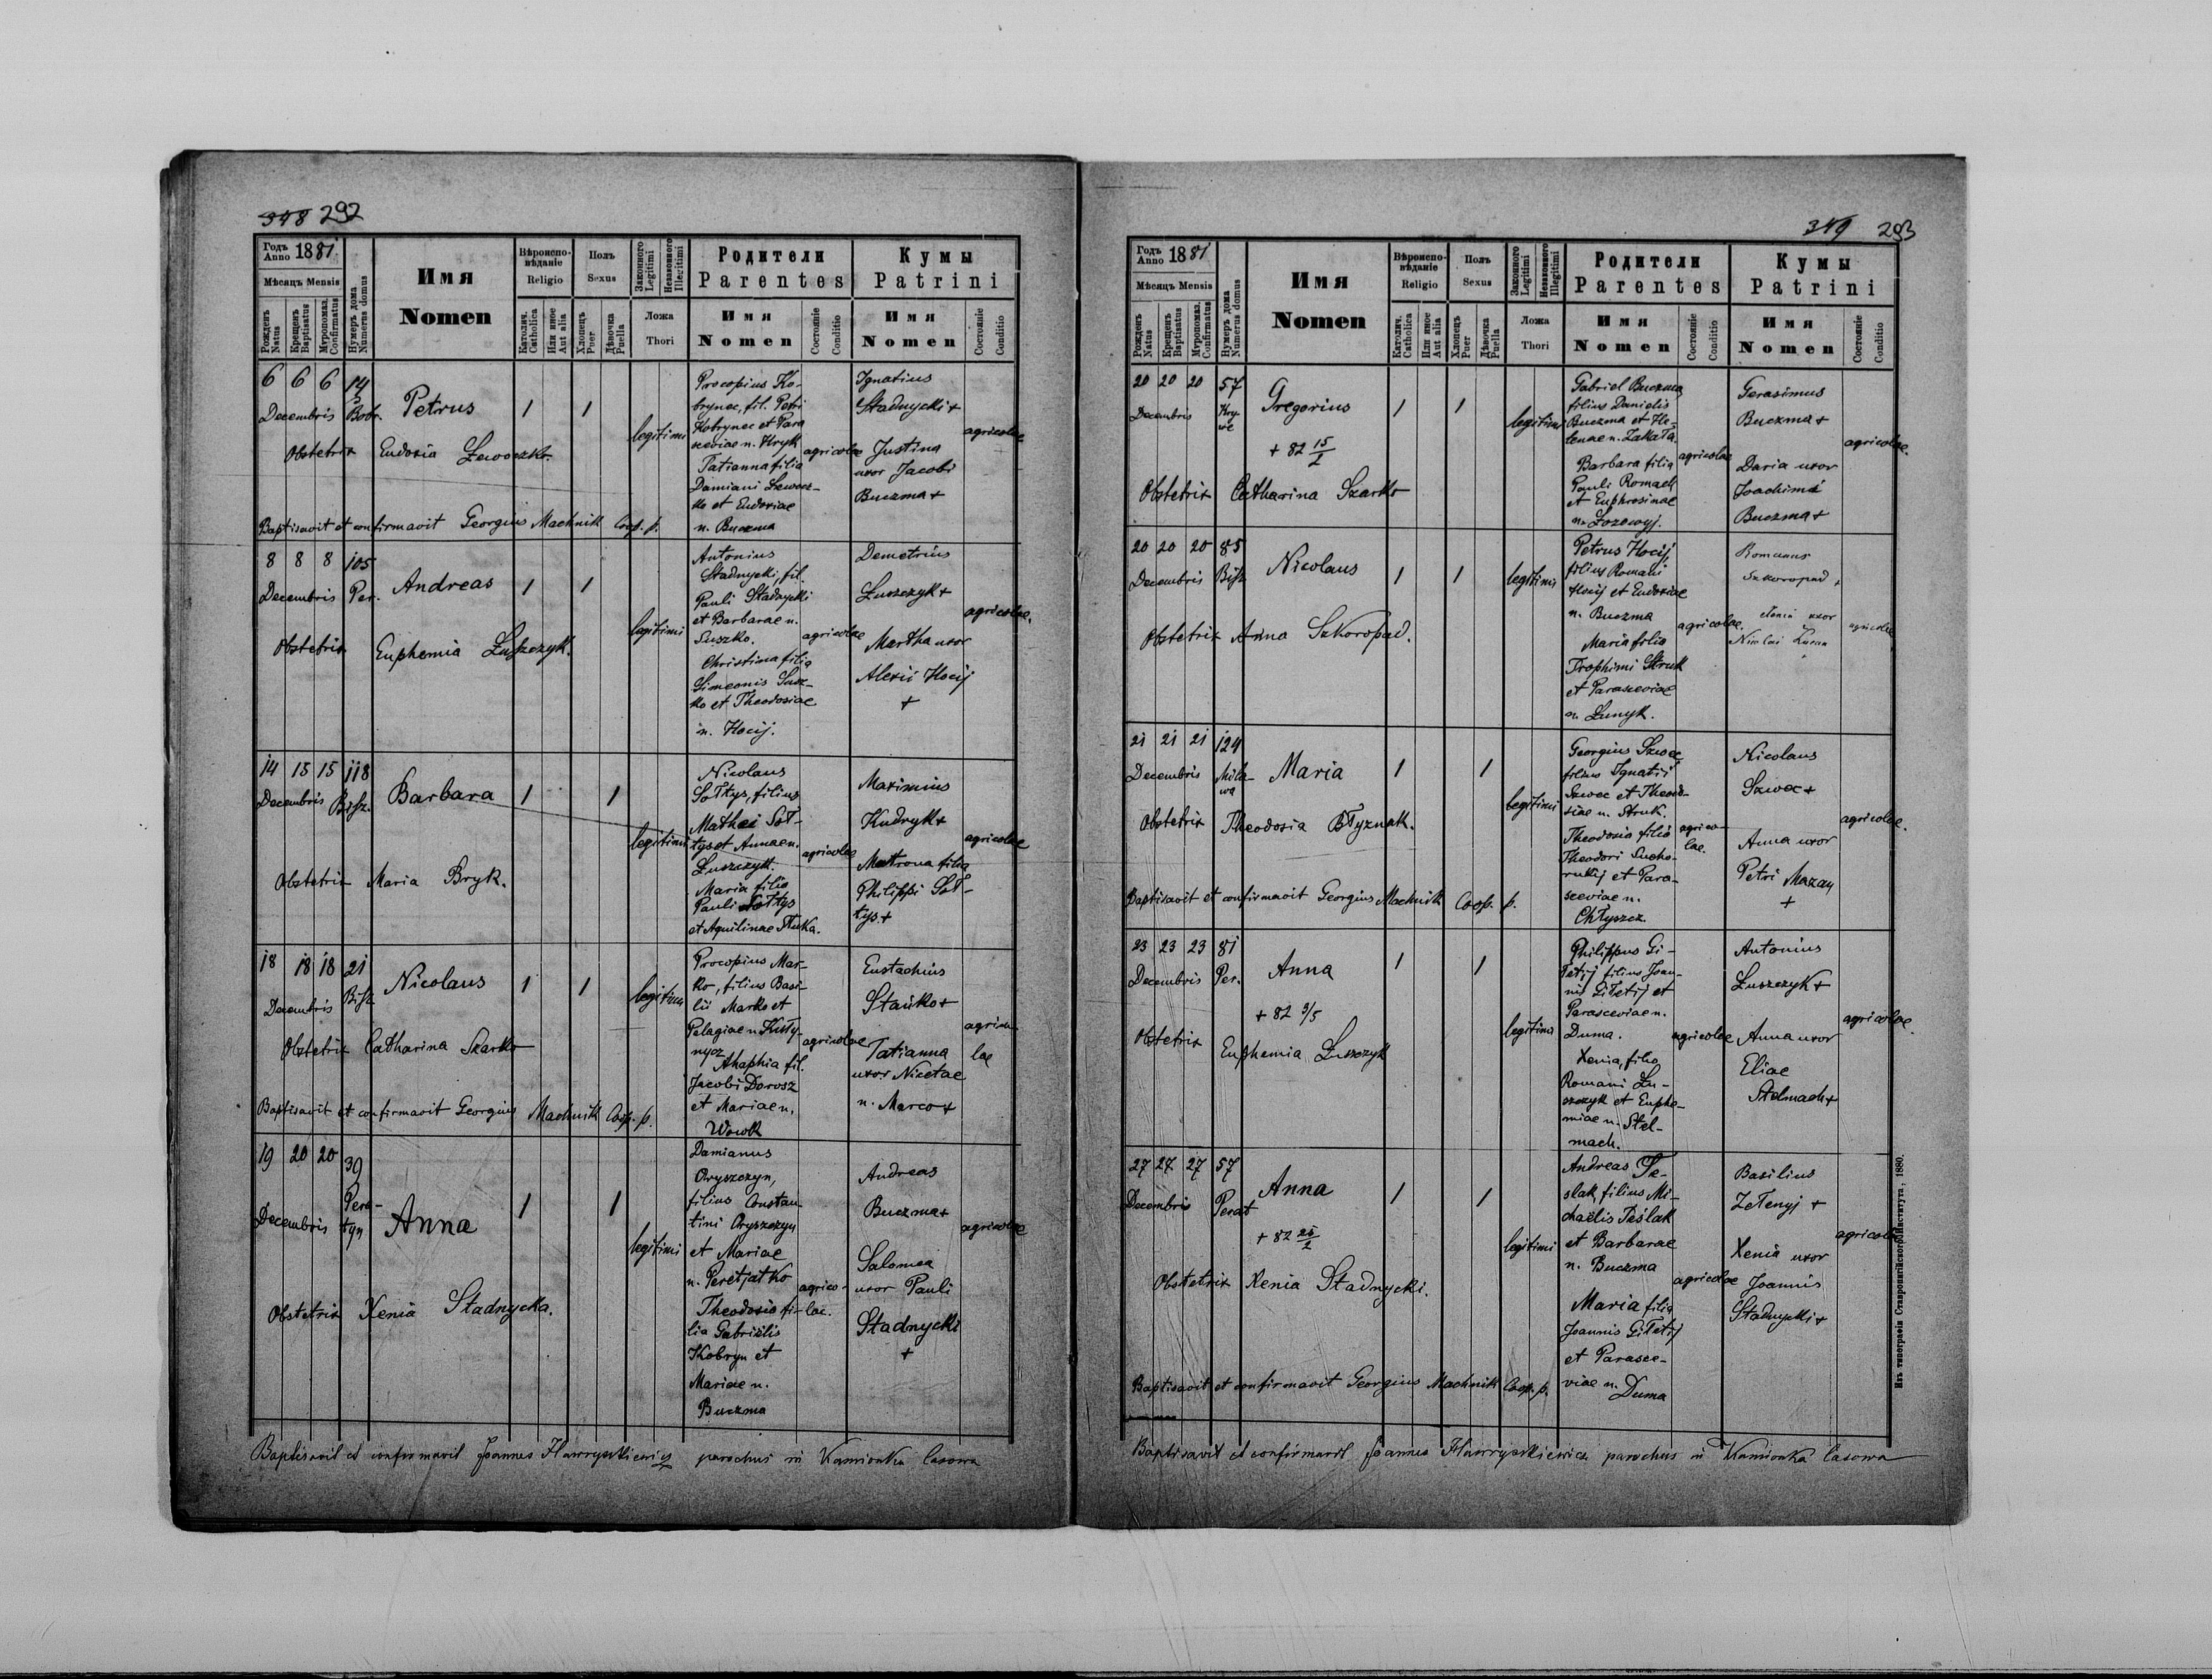 348 292
Годъ Anno 1881
Мѣсяцъ Mensis
Рожденъ Natus
Крещенъ Baptisatus
Муропомаз. Confirmatus
Нумеръ дома Numerus domus
Имя
Nomen
Вѣроиспо-
вѣданіе
Religio
Католич. Catholica
Или иное Aut alia
Полъ
Sexus
Хлопецъ Puer
Дѣвочка Puella
Законного Legitimi
Незаконного Illegitimi
Ложа
Thori
Родители
Parentes
Имя
Nomen
Состояніе Conditio
Кумы
Patrini
Имя
Nomen
Состояніе Conditio
6 6 6 14
Decembris Bobr.
Petrus
1 1
legitimi
Procopius Ko-
brynec, fil. Petri
Kobrynec et Para
sceviae n. Hryk
Tatianna filia
Damiani Szewcz-
ko et Eudoxiae
n. Buczma
agricolae
Ignatius
Stadnycki +
Justina
uxor Jacobi
Buczma +
agricolae
Obstetrix Eudoxia
Baptisavit et confirmavit Georgius Machnik Coop. p.
8 8 8 105
Decembris Per.
Andreas
1 1
legitimi
Antonius
Stadnycki, fil.
Pauli Stadnycki
et Barbarae n.
Suszko.
Christina filia
Simeonis Susz-
ko et Theodosiae
n. Hocij.
agricolae
Demetrius
Łuszczyk +
Martha uxor
Alexii Hocij
+
agricolae.
Obstetrix Euphemia Łuszczyk.
14 15 15 118
Decembris Bisz.
Barbara
1 1
legitimi
Nicolaus
Sołtys, filius
Mathei Soł-
tys et Annae n.
Łuszczyk.
Maria filia
Pauli Sołtys
et Aquilinae Tłuka.
agricolae
Maximius
Kudryk +
Matrona filia
Philippi Soł-
tys. +
agricolae
Obstetrix Maria Bryk.
18 18 18 21
Decembris Bisz
Nicolaus
1 1
legitimi
Procopius Mar-
ko, filius Basi-
lii Marko et
Pelagiae n.
Ahaphia fil.
Jacobi Dorosz
et Mariae n.
Wowk
agricolae
Eustachius
Stańko +
Tatianna
uxor Nicetae
n. Marco +
agrico-
lae
Obstetrix Catharina Szarko
Baptisavit et confirmavit Georgius Machnik Coop. p.
19 20 20 39
Decembris Pera-
tyn
Anna
1 1
legitimi
Damianus
Oryszczyn,
filius Constan-
tini Oryszczyn
et Mariae
n. Peretjatko
Theodosia fi-
lia Gabriëlis
Kobryn et
Mariae n.
Buczma
agrico-
lae.
Andreas
Buczma +
Salomea
uxor Pauli
Stadnycki
+
agricolae
Obstetrix Xenia Stadnycka.
Baptisavit et confirmavit Joannes Hawryszkiewicz parochus in Kamionka Lasowa
349 293
Годъ Anno 1881
Мѣсяцъ Mensis
Рожденъ Natus
Крещенъ Baptisatus
Муропомаз. Confirmatus
Нумеръ дома Numerus domus
Имя
Nomen
Вѣроиспо-
вѣданіе
Religio
Католич. Catholica
Или иное Aut alia
Полъ
Sexus
Хлопецъ Puer
Дѣвочка Puella
Законного Legitimi
Незаконного Illegitimi
Ложа
Thori
Родители
Parentes
Имя
Nomen
Состояніе Conditio
Кумы
Patrini
Имя
Nomen
Состояніе Conditio
20 20 20 57
Decembris
Gregorius
+ 82 15/2
1 1
legitimi
Gabriel Buczma
filius Danielis
Buczma et He-
lenae n. Zakała
Barbara filia
Pauli Romach
et Euphrosinae
n. Łozowyj.
agricolae
Gerasimus
Buczma +
Daria uxor
Joachimi
Buczma +
agricolae.
Obstetrix Catharina Szarko
20 20 20 85
Decembris Bisz
Nicolaus
1 1
legitimi
Petrus Hocij
filius Romani
Hocij et Eudoxiae
n. Buczma
Maria filia
Trophimi Struk
et Parasceviae
n. Łunyk.
agricolae.
Romanus
Szkoropad +
uxor
Nicolai
agricolae
Obstetrix Anna Szkoropad.
21 21 21 124
Decembris Mila-
wa
Maria
1 1
legitimi
Georgius Szwec,
filius Ignatii
Szwec et Theodo-
siae n. Struk.
Theodosia filia
Theodori Sucho-
rukij et Para-
sceviae n.
Chłyszcz.
agrico-
lae.
Nicolaus
Szwec +
Anna uxor
Petri Mazan
+
agricolae.
Obstetrix Theodosia Błyznak.
Baptisavit et confirmavit Georgius Machnik Coop. p.
23 23 23 81
Decembris Per.
Anna
+ 82 3/5
1 1
legitimi
Philippus Gi-
letij filius Joan-
nis Giletij et
Parasceviae n.
Duma.
Xenia, filia
Romani Łu-
szczyk et Euphe-
miae n. Stel-
mach.
agricolae
Antonius
Łuszczyk +
Anna uxor
Eliae
Stelmach +
agricolae.
Obstetrix Euphemia Łuszczyk
27 27 27 57
Decembris Perat
Anna
+ 82 25/2
1 1
legitimi
Andreas Te-
slak, filius Mi-
chaëlis Teślak
et Barbarae
n. Buczma
Maria filia
Joannis Giletij
et Parasce-
viae n. Duma
agricolae
Basilius
Zełenyj +
Xenia uxor
Joannis
Stadnycki +
agricolae
Obstetrix Xenia Stadnycki.
Baptisavit et confirmavit Georgius Machnik Coop. p.
Baptisavit et confirmavit Joannes Hawryszkiewicz parochus in Kamionka Lasowa
Изъ типографіи Ставропигійского Института, 1880.